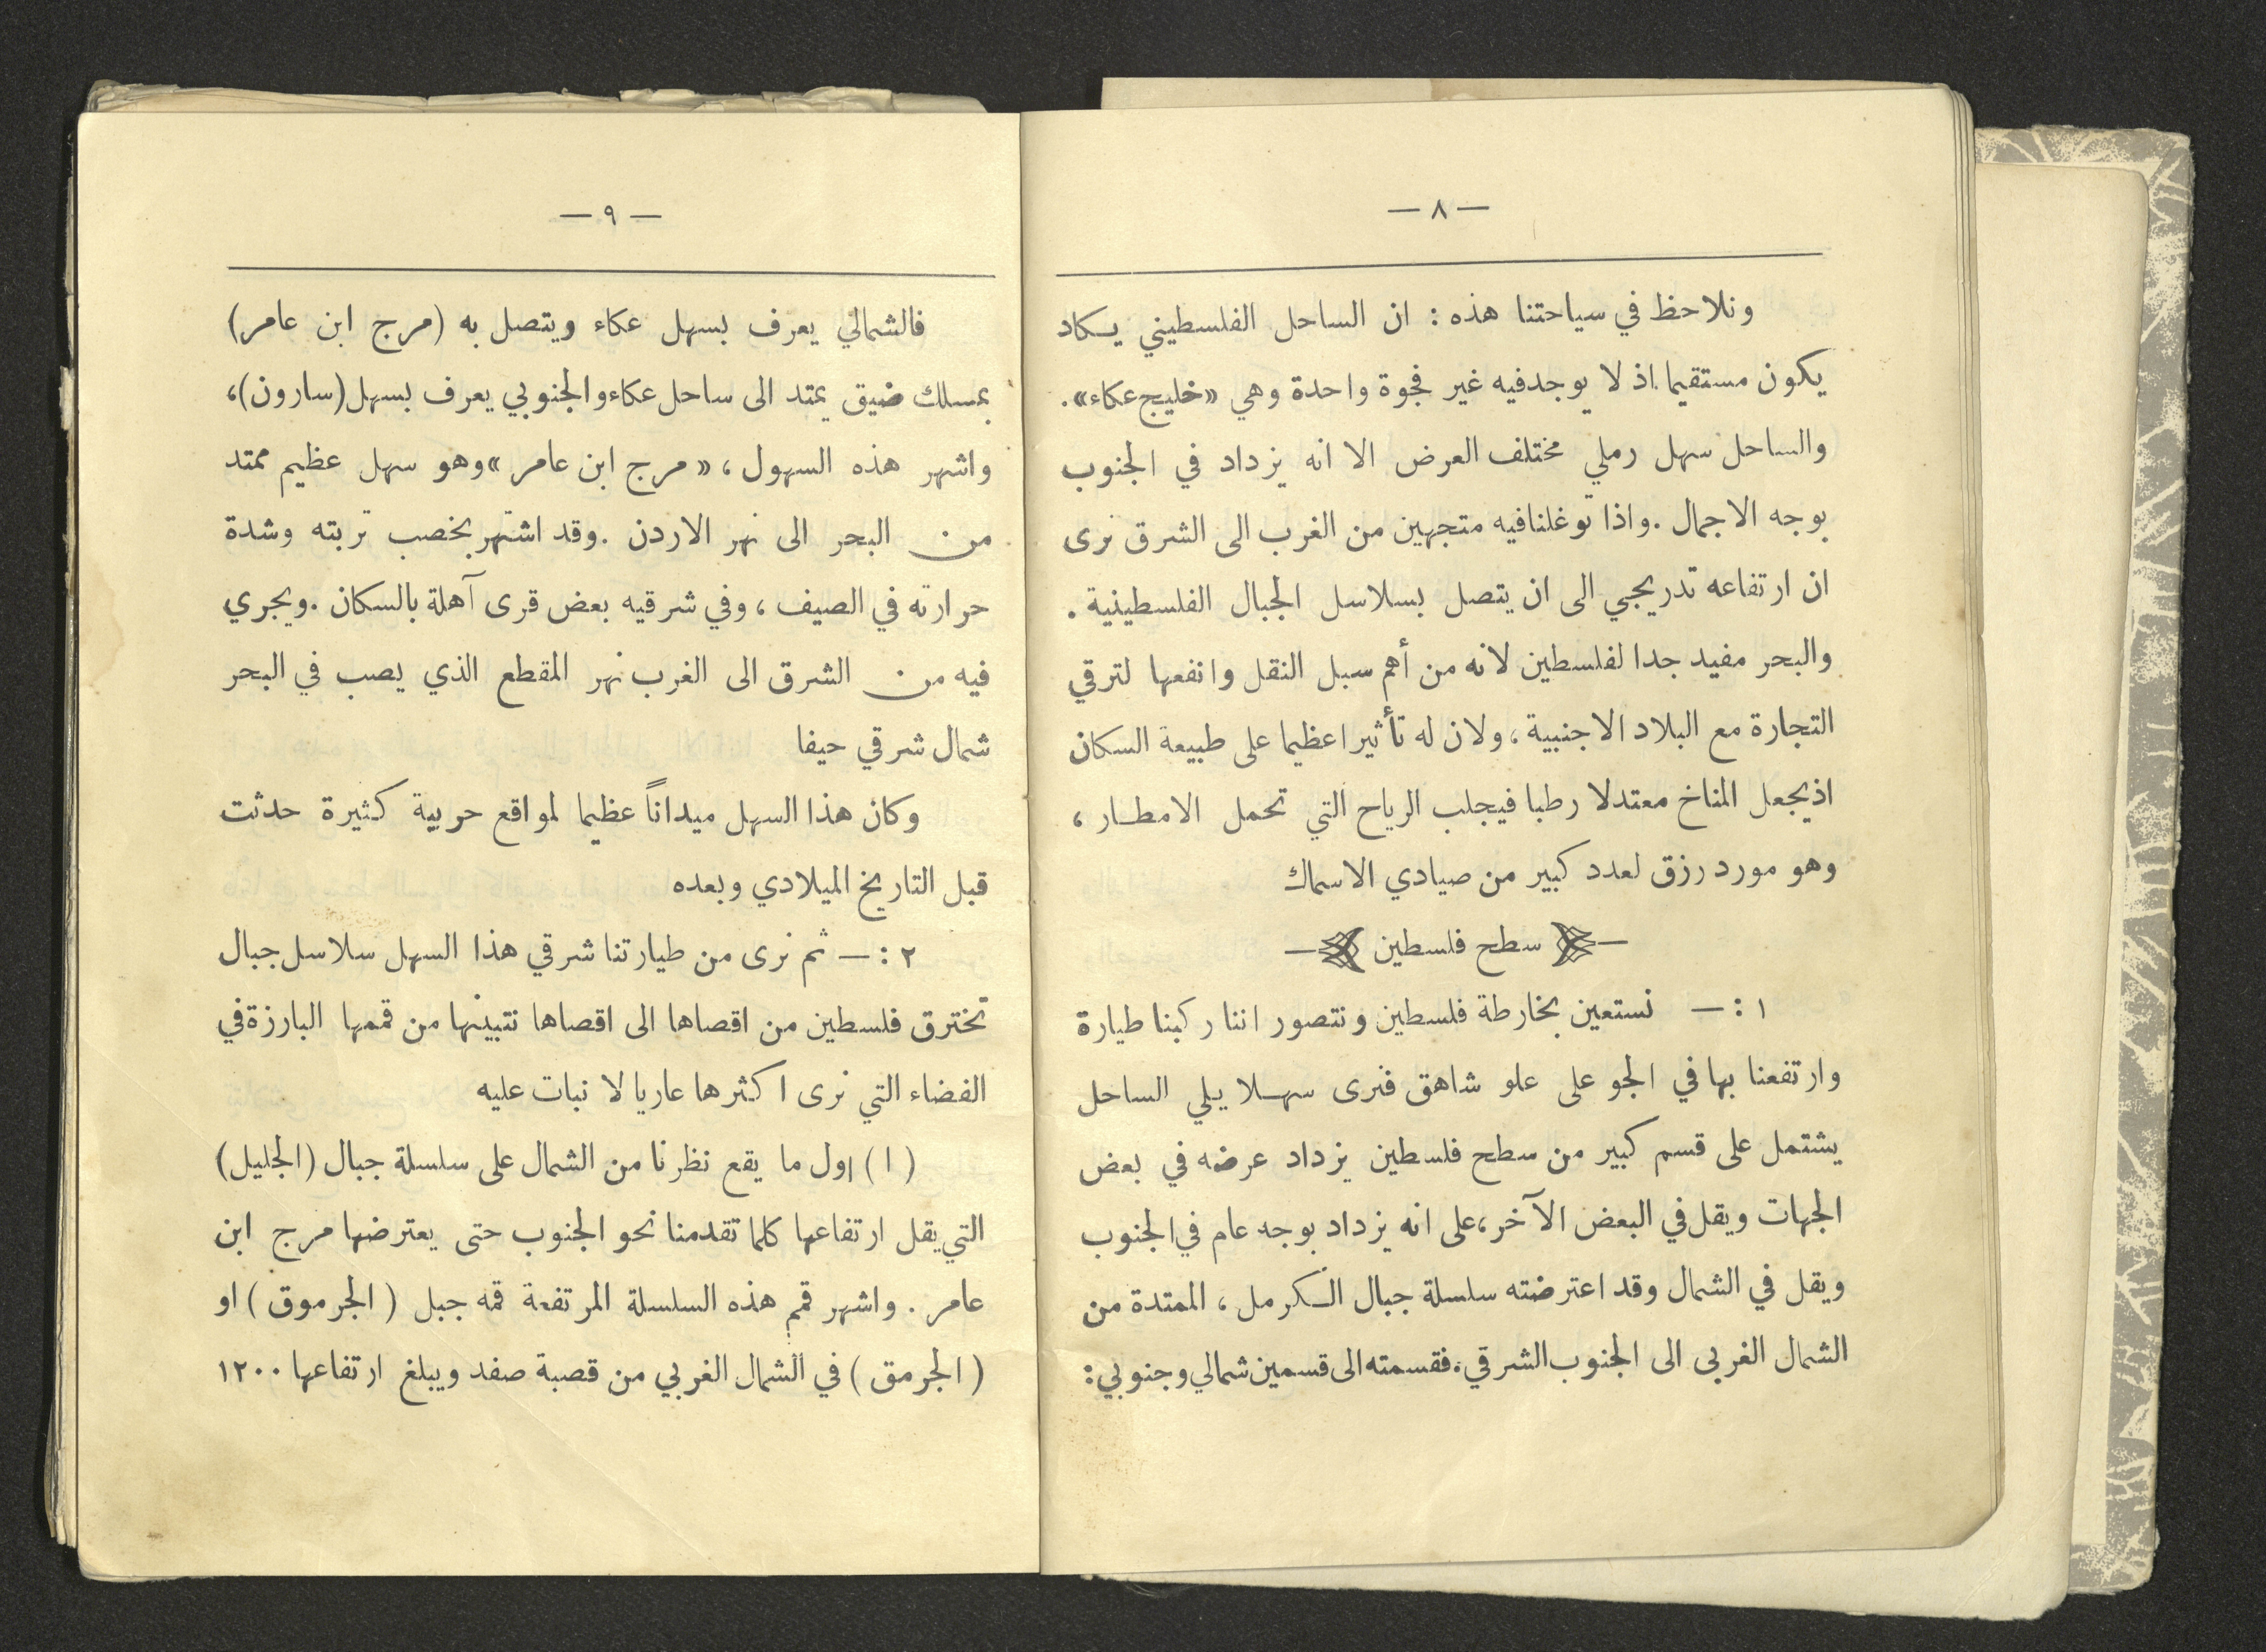 — ٨ —
ونلاحظ في سياحتنا هذه : ان الساحل الفلسطيني يكاد
يكون مستقيما اذ لا يوجد فيه غير فجوة واحدة وهي «خليج عكاء».
والساحل سهل رملي مختلف العرض الا انه يزداد في الجنوب
بوجه الاجمال . واذا توغلنا فيه متجهين من الغرب الى الشرق نرى
ان ارتفاعه تدريجي الى ان يتصل بسلاسل الجبال الفلسطينية .
والبحر مفيد جدا لفلسطين لانه من أهم سبل النقل وانفعها لترقي
التجارة مع البلاد الاجنبية ، ولان له تأثيرا عظيما على طبيعة السكان
اذ يجعل المناخ معتدلا رطبا فيجلب الرياح التي تحمل الامطار ،
وهو مورد رزق لعدد كبير من صيادي الاسماك
سطح فلسطين
١ : — نستعين بخارطة فلسطين ونتصور اننا ركبنا طيارة
وارتفعنا بها في الجو على علو شاهق فنرى سهلا يلي الساحل
يشتمل على قسم كبير من سطح فلسطين يزداد عرضه في بعض
الجهات ويقل في البعض الآخر ، على انه يزداد بوجه عام في الجنوب
ويقل في الشمال وقد اعترضته سلسلة جبال الكرمل ، الممتدة من
الشمال الغربي الى الجنوب الشرقي . فقسمته الى قسمين شمالي وجنوبي :
— ٩ —
فالشمالي يعرف بسهل عكاء ويتصل به (مرج ابن عامر)
بمسلك ضيق يمتد الى ساحل عكاء والجنوبي يعرف بسهل (سارون) ،
واشهر هذه السهول ، «مرج ابن عامر» وهو سهل عظيم ممتد
من البحر الى نهر الاردن . وقد اشتهر بخصب تربته وشدة
حرارته في الصيف ، وفي شرقيه بعض قرى آهلة بالسكان . ويجري
فيه من الشرق الى الغرب نهر المقطع الذي يصب في البحر
شمال شرقي حيفا
وكان هذا السهل ميداناً عظيما لمواقع حربية كثيرة حدثت
قبل التاريخ الميلادي وبعده
٢ : — ثم نرى من طيارتنا شرقي هذا السهل سلاسل جبال
تخترق فلسطين من اقصاها الى اقصاها نتبينها من قممها البارزة في
الفضاء التي نرى اكثرها عاريا لا نبات عليه
( ا ) اول ما يقع نظرنا من الشمال على سلسلة جبال (الجليل)
التي يقل ارتفاعها كلما تقدمنا نحو الجنوب حتى يعترضها مرج ابن
عامر . واشهر قمم هذه السلسلة المرتفعة قمه جبل ( الجرموق ) او
( الجرمق ) في الشمال الغربي من قصبة صفد ويبلغ ارتفاعها ١٢٠٠